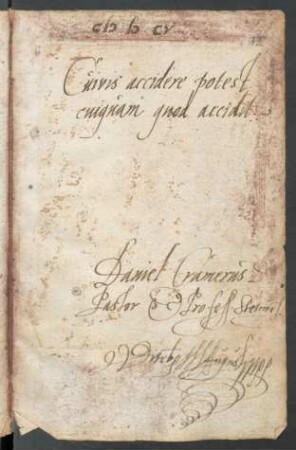 cIↃ IↃ CV
Cuivis accidere potest
cuiquam quod accidit
Daniel Cramerus
Pastor & Profess. Stetini